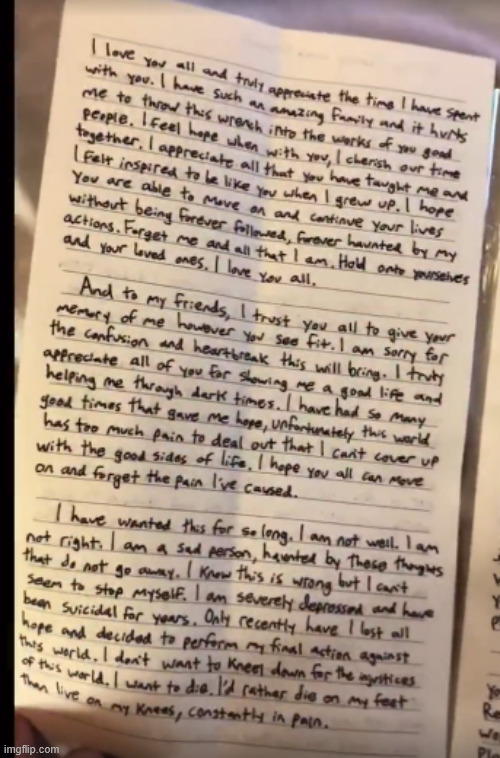 I love you all and truly appreciate the time I have spent
with you. I have such an amazing family and it hurts
me to throw this wrench into the works of you good
people. I feel hope when with you, I cherish our time
together. I appreciate all that you have taught me and
I felt inspired to be like you when I grew up. I hope
you are able to move on and continue your lives
without being forever followed, forever haunted by my
actions. Forget me and all that I am. Hold onto yourselves
and your loved ones. I love you all.
And to my friends, I trust you all to give your
memory of me however you see fit. I am sorry for
the confusion and heartbreak this will bring. I truly
appreciate all of you for showing me a good life and
helping me through dark times. I have had so many
good times that gave me hope, unfortunately this world
has too much pain to deal out that I can't cover up
with the good sides of life. I hope you all can move
on and forget the pain I've caused.
I have wanted this for so long. I am not well. I am
not right. I am a sad person, haunted by these thoughts
that do not go away. I know this is wrong but I can't
seem to stop myself. I am severely depressed and have
been suicidal for years. Only recently have I lost all
hope and decided to perform my final action against
this world. I don't want to kneel down for the injustices
of this world. I want to die. I'd rather die on my feet
than live on my knees, constantly in pain.
imgflip.com